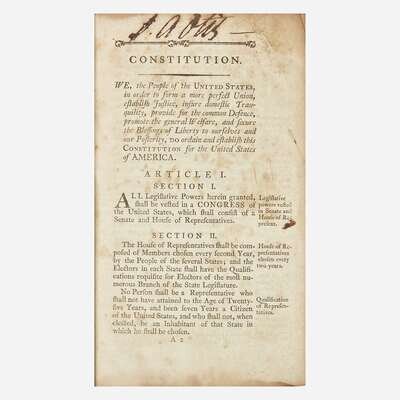 CONSTITUTION.
WE, the People of the UNITED STATES,
in order to form a more perfect Union,
establish Justice, insure domestic Tran-
quility, provide for the common Defence,
promote the general Welfare, and secure
the Blessings of Liberty to ourselves and
our Posterity, DO ordain and establish this
CONSTITUTION for the United States
of AMERICA.
ARTICLE I.
SECTION I.
ALL Legislative Powers herein granted,
shall be vested in a CONGRESS of
the United States, which shall consist of a
Senate and House of Representatives.
Legislative
powers vested
in Senate and
House of Re-
present.
SECTION II.
The House of Representatives shall be com-
posed of Members chosen every second Year,
by the People of the several States; and the
Electors in each State shall have the Qualifi-
cations requisite for Electors of the most nu-
merous Branch of the State Legislature.
House of Re-
presentatives
chosen every
two years.
No Person shall be a Representative who
shall not have attained to the Age of Twenty-
five Years, and been seven Years a Citizen
of the United States, and who shall not, when
elected, be an Inhabitant of that State in
which he shall be chosen.
Qualification
of Represen-
tatives.
A 2